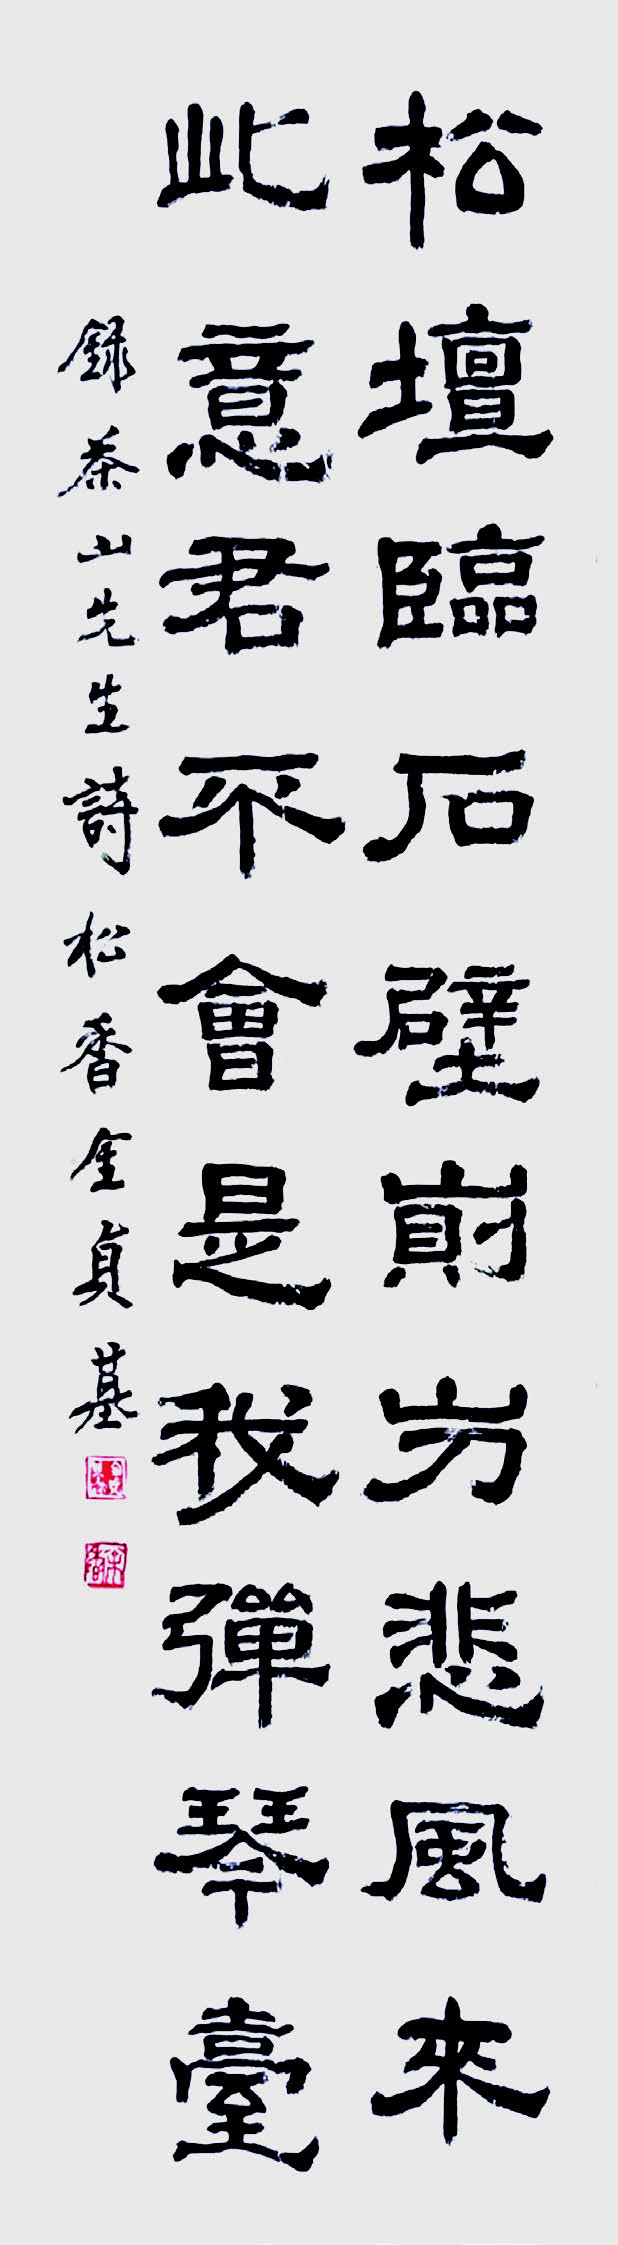 松壇臨石壁崱屴悲風來
此意君不會是我彈琴臺
錄茶山先生詩 松香金貞基